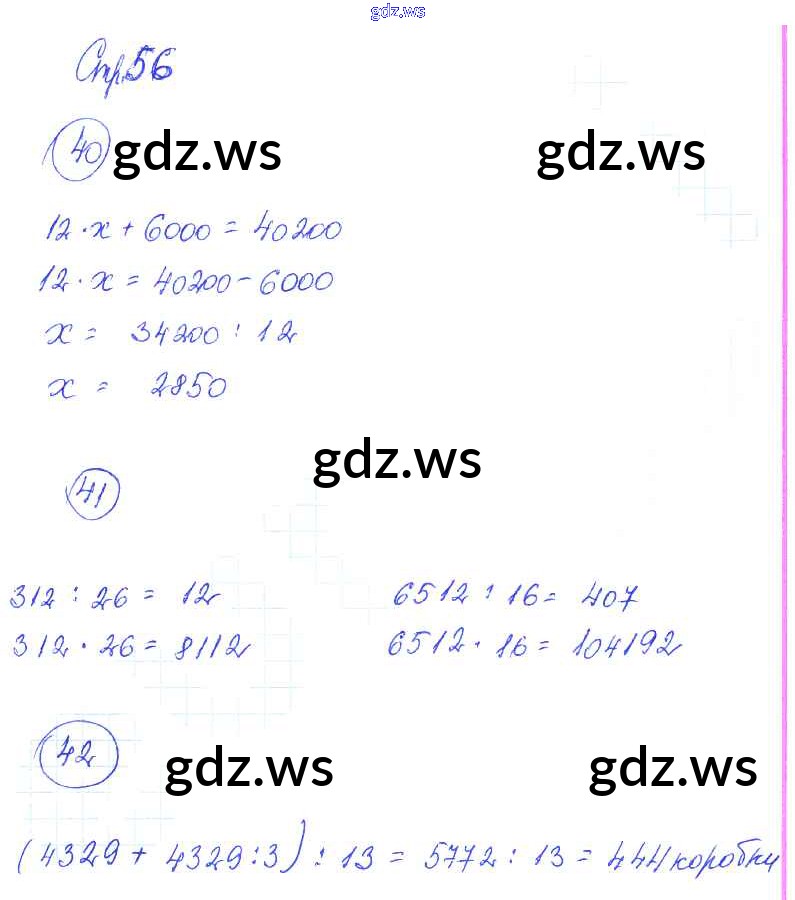 gdz.ws
Стр.56
40 gdz.ws gdz.ws
12 · x + 6000 = 40200
12 · x = 40200 - 6000
x = 34200 : 12
x = 2850
gdz.ws
41
312 : 26 = 12 6512 : 16 = 407
312 · 26 = 8112 6512 · 16 = 104192
42 gdz.ws gdz.ws
(4329 + 4329:3) : 13 = 5772 : 13 = 444 коробки